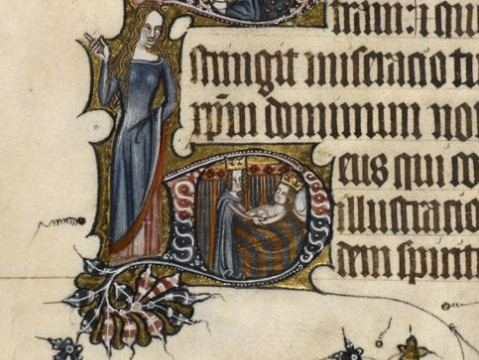 stringit miseratio tu
xp̄m dominum no
Deus qui co
illustracio
dem spirit